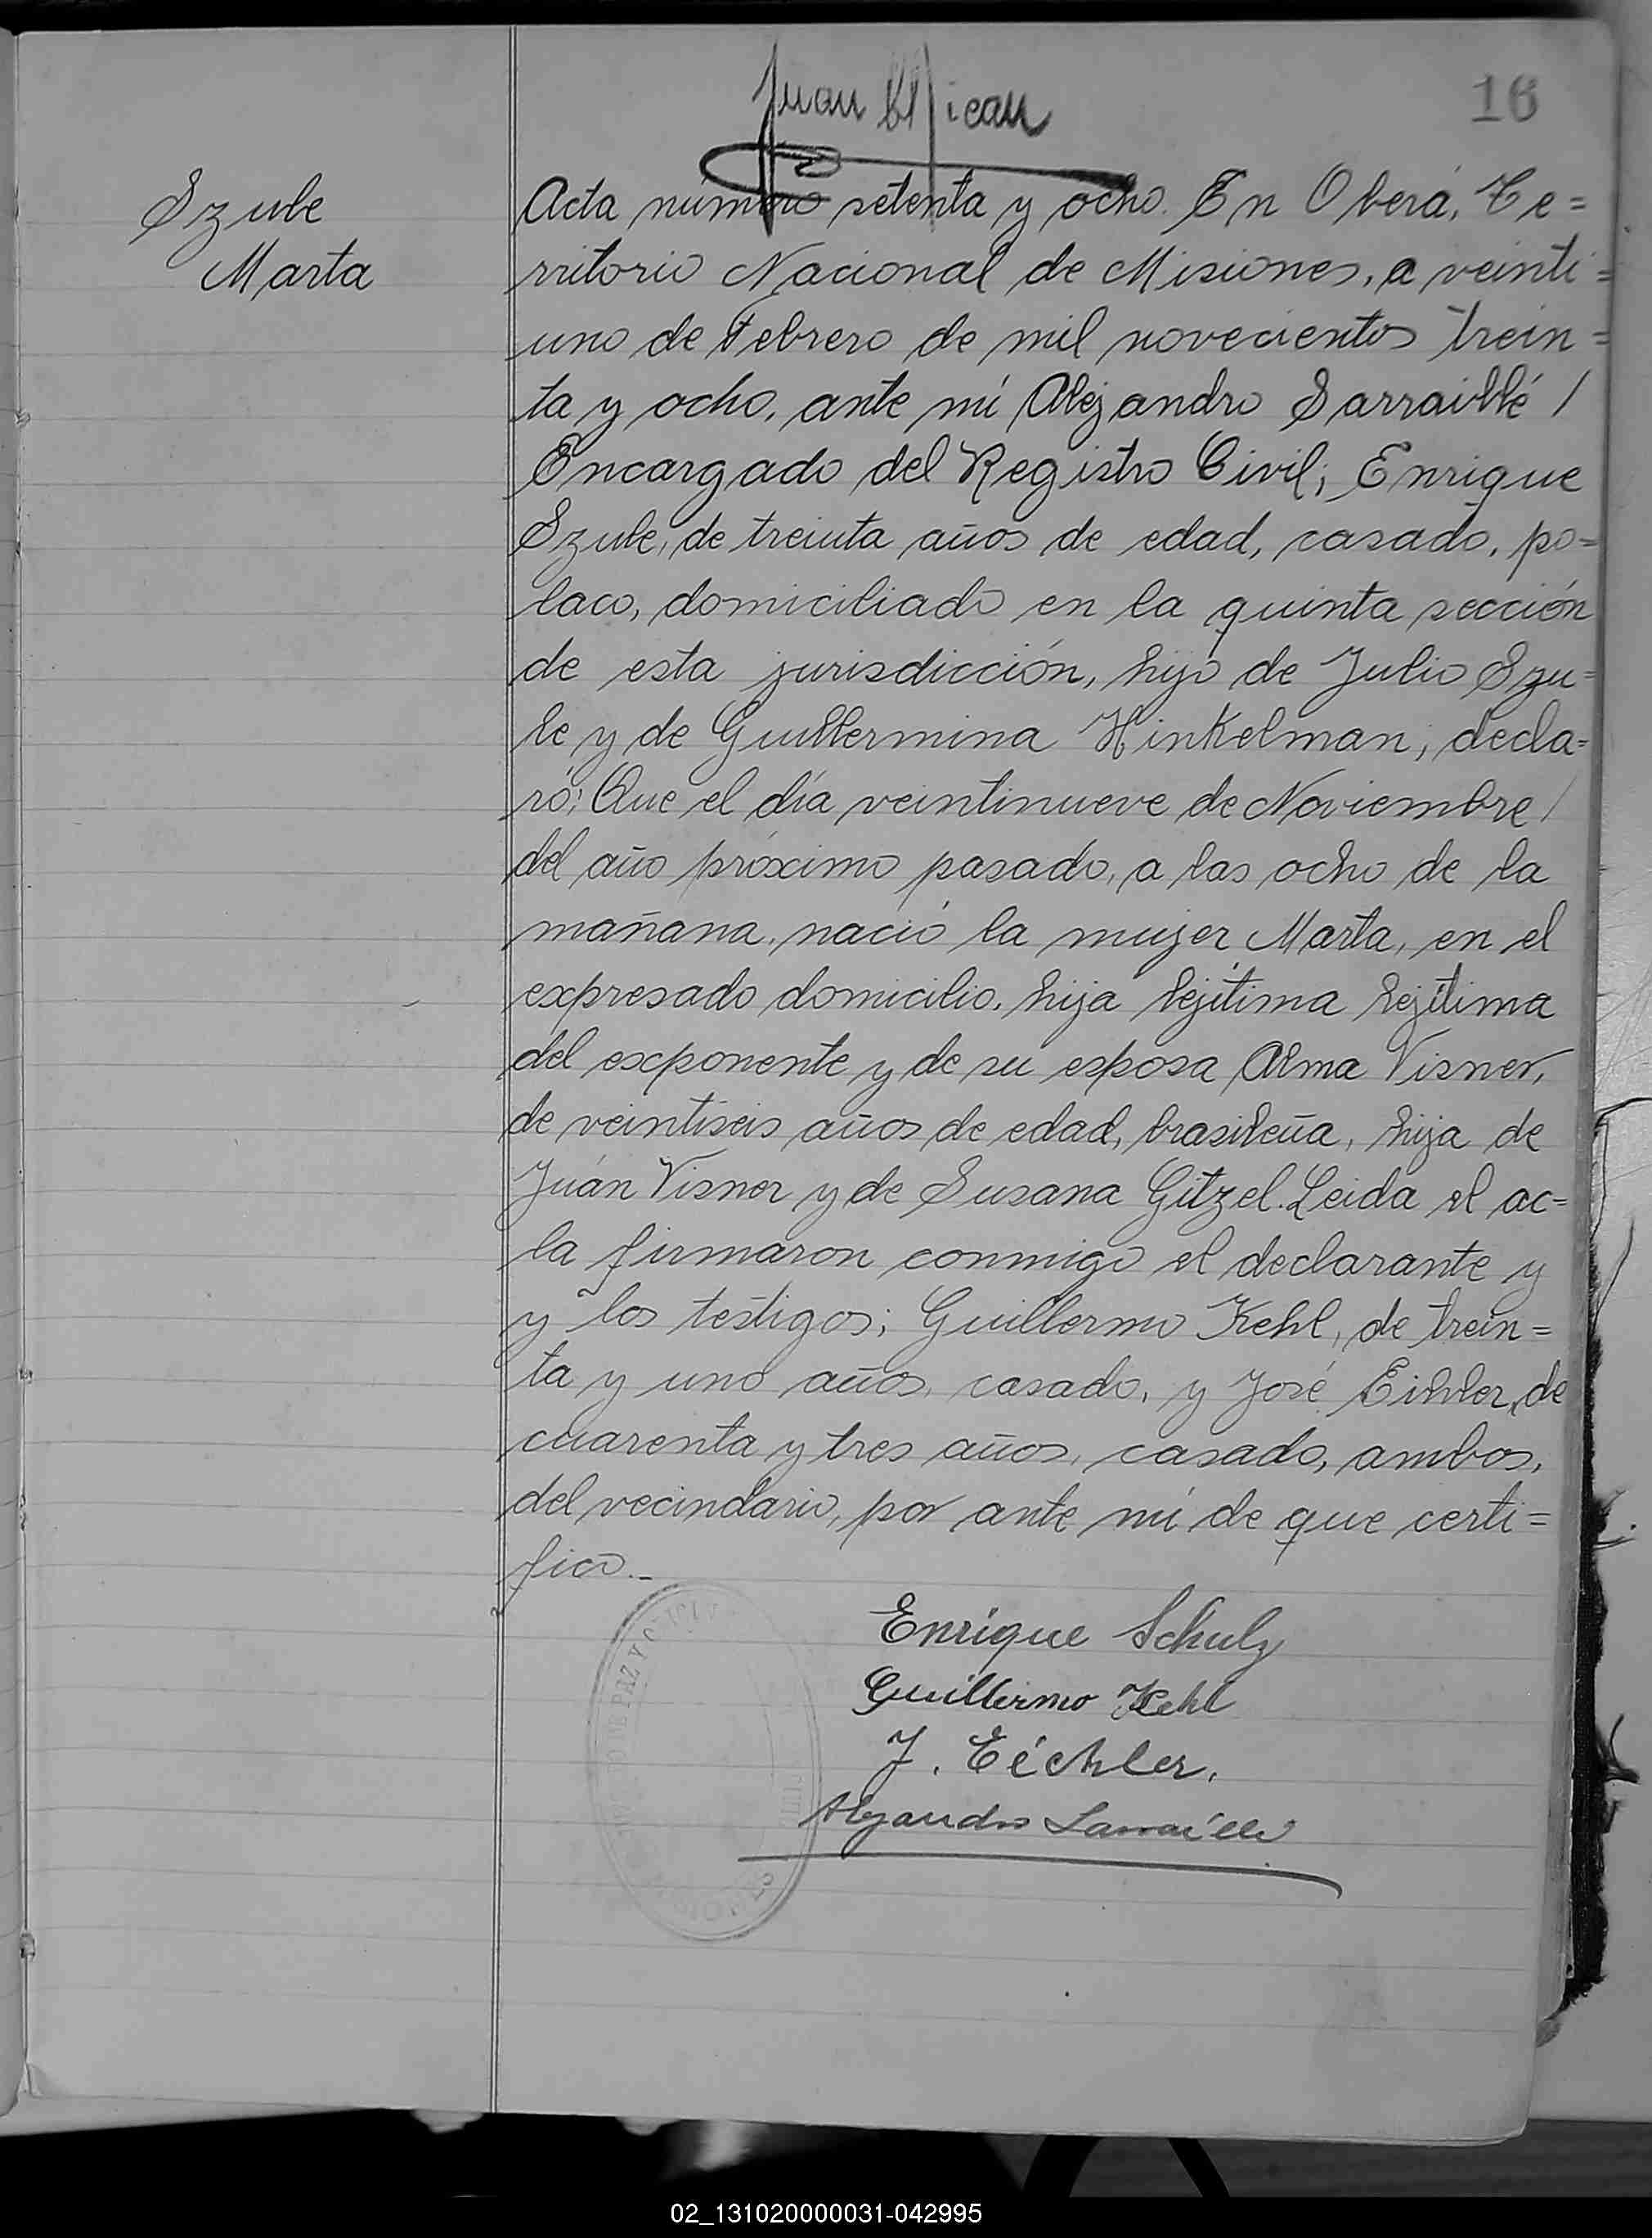 Juan
16
Szule
Marta
Acta número setenta y ocho. En Oberá, Te=
rritorio Nacional de Misiones, a veinti=
uno de Febrero de mil novecientos trein=
ta y ocho, ante mí Alejandro Sarraillé /
Encargado del Registro Civil; Enrique
Szule, de treinta años de edad, casado, po=
laco, domiciliado en la quinta sección
de esta jurisdicción, hijo de Julio Szu=
le y de Guillermina Hinkelman, decla=
ró: Que el día veintinueve de Noviembre /
del año próximo pasado, a las ocho de la
mañana, nació la mujer Marta, en el
expresado domicilio, hija lejítima lejítima
del exponente y de su esposa Alma Visner,
de veintiseis años de edad, brasileña, hija de
Juán Visner y de Susana Gitzel. Leida el ac=
ta firmaron conmigo el declarante y
y los testigos; Guillermo Kehl, de trein=
ta y uno años, casado, y José Eihler, de
cuarenta y tres años, casado, ambos,
del vecindario, por ante mí de que certi=
fico._
DE PAZ Y
Enrique Schulz
Guillermo Kehl
J. Eichler.
Alejandro Sarraillé
02_131020000031-042995